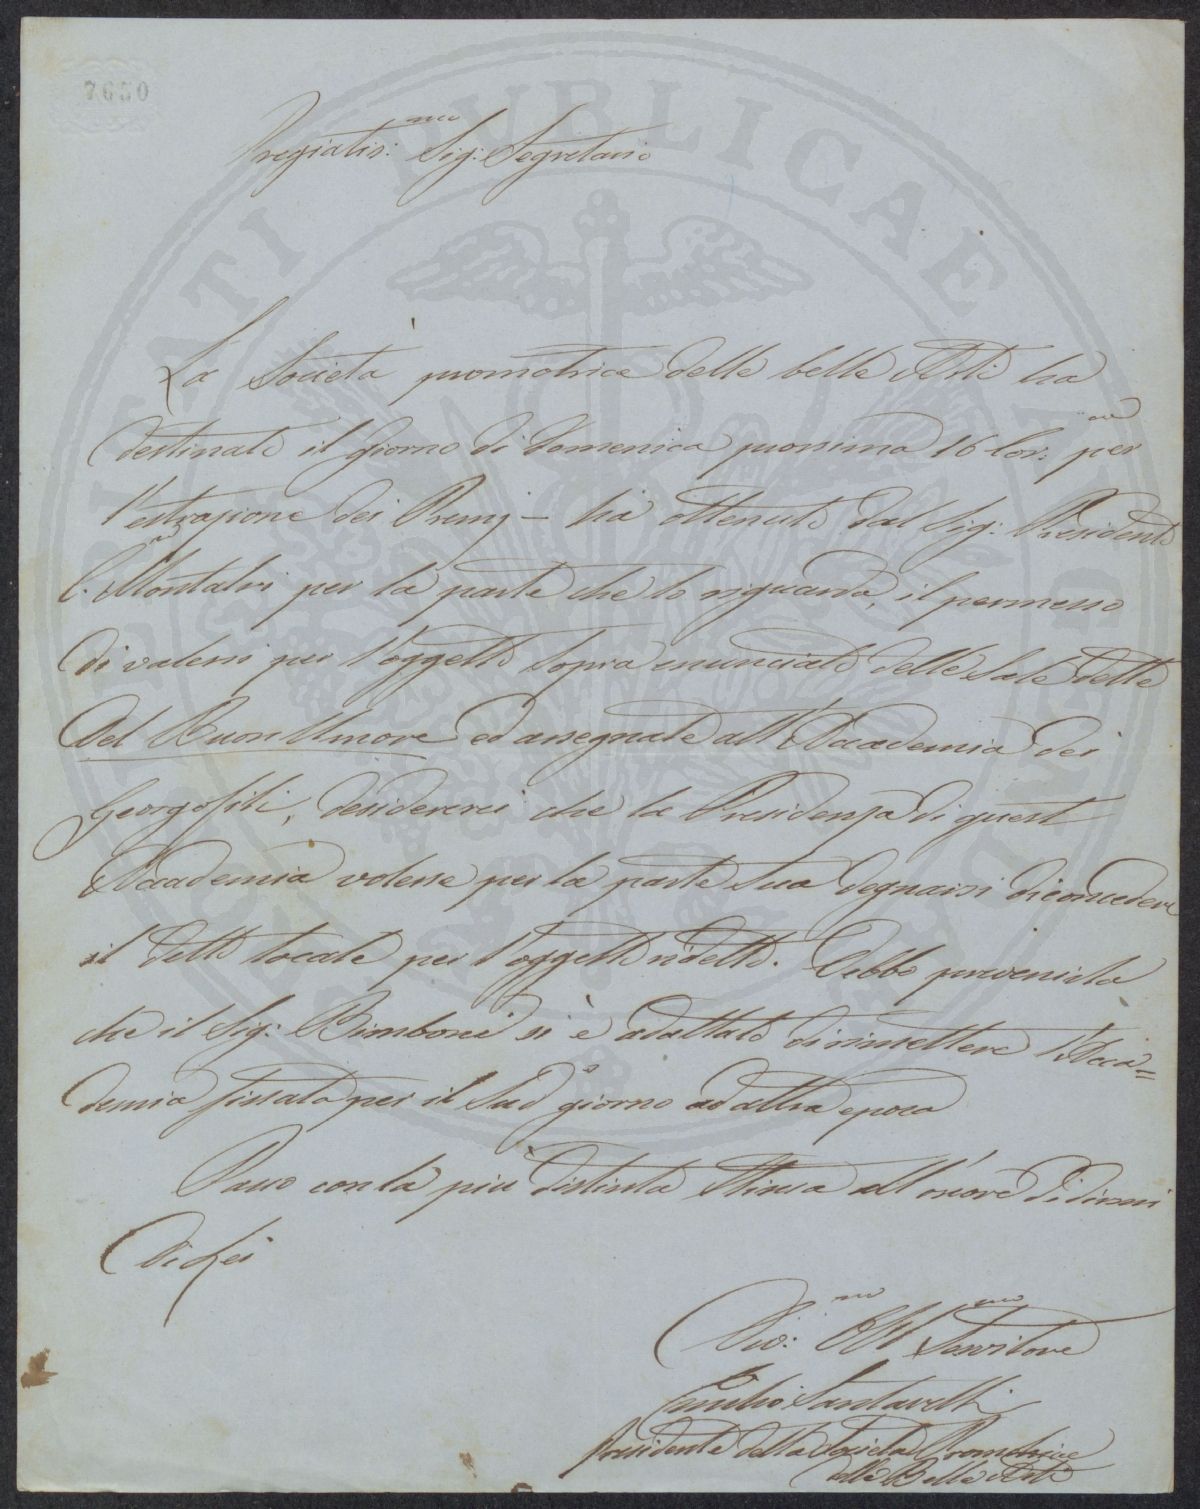 7650
Pregiatis:mo Sig: Segretario
La Società promotrice delle belle Arti ha
destinato il giorno di Domenica prossima 16 Cor: per
l'estrazione dei Premj — ha ottenuto dal Sig: Presidente
C. Montalvi per la parte che lo riguarda, il permesso
di valersi per l'oggetto sopra enunciato delle Sale dette
del Buon Umore ed assegnate all'Accademia dei
Georgofili, desidererei che la Presidenza di quest
Accademia volesse per la parte sua degnarsi di concedere
il detto locale per l'oggetto sudetto. Debbo prevenirla
che il Sig: Bimboni si è adattato di rimettere l'Acca=
demia fissata per il Sudº giorno ad altra epoca
Passo con la più distinta Stima all'onore di dirmi
Di Lei
Dev:mo Obb.mo Servitore
Emilio Santarelli
Presidente della Società Promotrice
delle Belle Arti
PUBLICAE